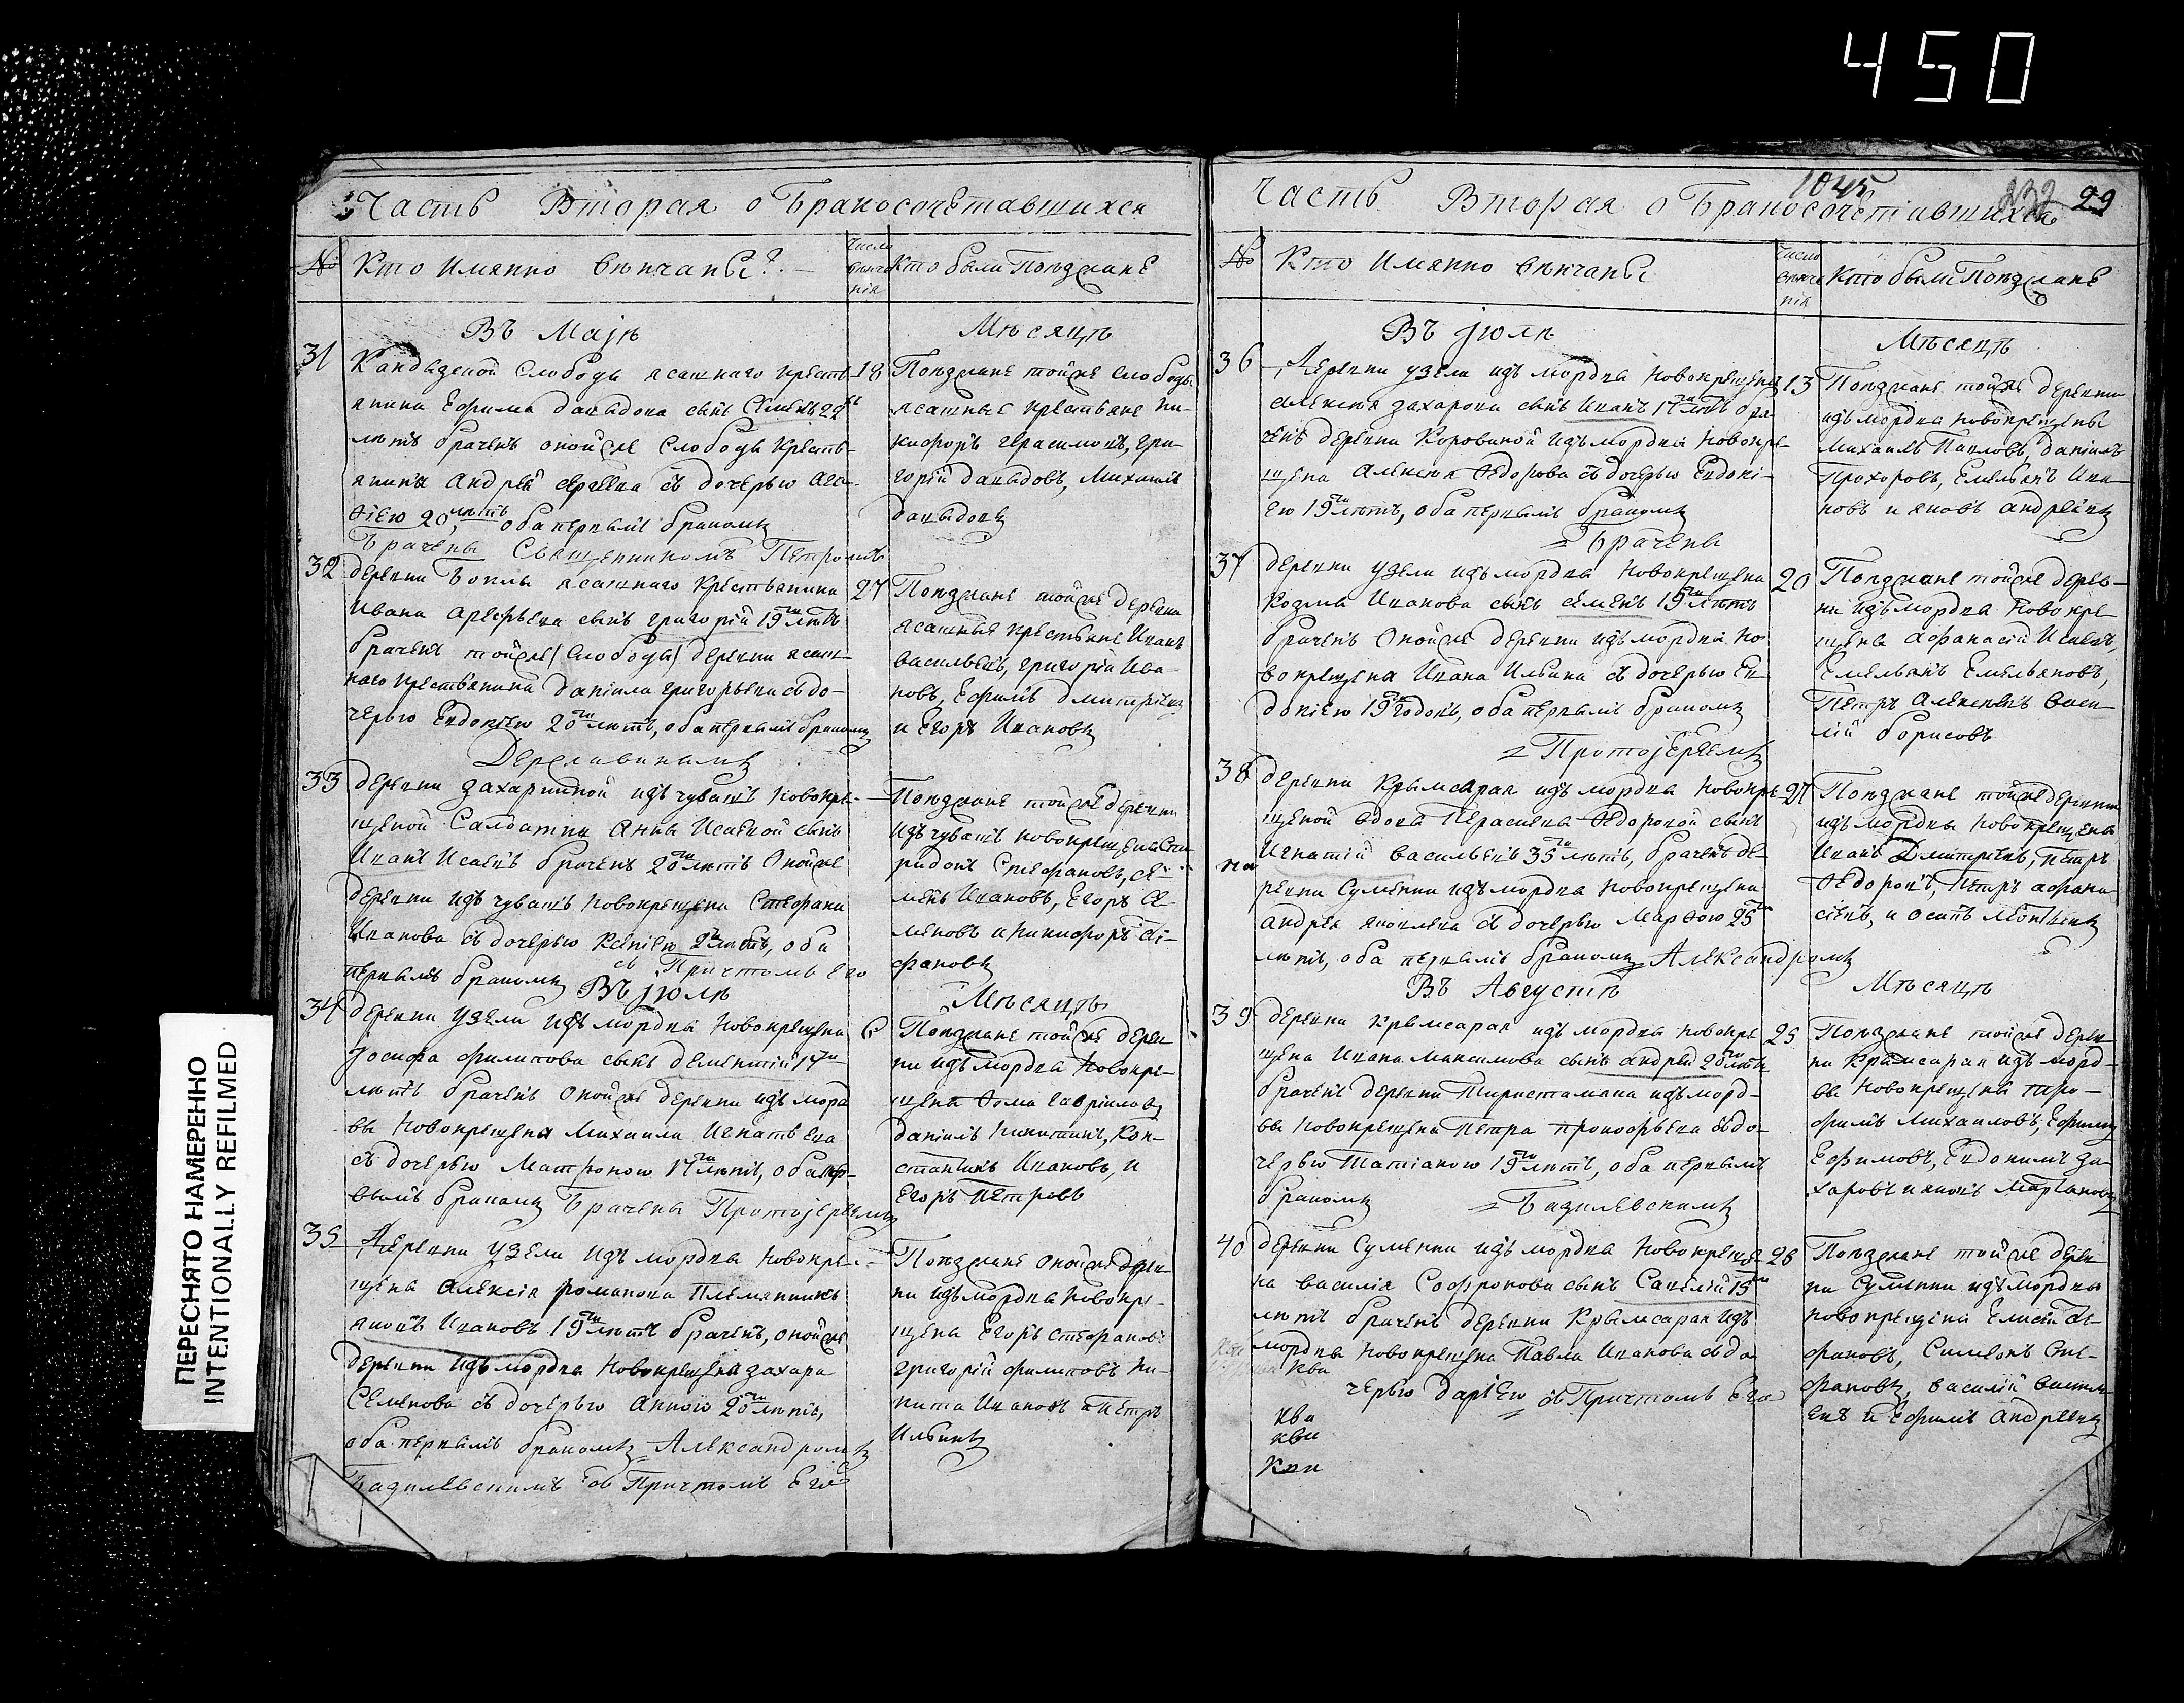 450
Часть Вторая о Бракосочетавшихся
№ Кто Имянно венчаны? число венчания Кто были Поезжане
Въ Маiѣ Мѣсяцѣ
31 Кандызской Слободы ясашнаго крестьянина 18
Ефима давыдова сынъ Семенъ 22
лѣтъ браченъ оной же Слободы Кресть-
янина Андрея сергеева съ дочерью Ага-
фіею 20 лѣтъ оба первымъ бракомъ
Поезжане той же слободы
ясашные крестьяне Ни-
кифоръ герасимовъ, гри-
горій давыдовъ, Михаилъ
давыдовъ
Брачены Священникомъ Петромъ
32 деревни ясашнаго Крестьянина 27
Ивана арефьева сынъ григорій 19 лѣтъ
браченъ той же (Слободы) деревни ясаш-
наго крестьянина даніила григорьева съ до-
черью Евдокіею 20 лѣтъ, оба первымъ бракомъ
Поезжане той же деревни
ясашные крестьяне Иванъ
васильевъ, григорій Ива-
новъ, Ефимъ дмитріевъ
и Егоръ Ивановъ
Державинымъ
33 деревни захаркиной изъ чувашъ новокре-
щеной Салдатки Анны Исаевой сынъ
Иванъ Исаевъ браченъ 20 лѣтъ Оной же
деревни изъ чувашъ новокрещена Стефана
Иванова съ дочерью Ксеніею лѣтъ, оба
первымъ бракомъ съ Причтомъ Его
Поезжане той же деревни
изъ чувашъ новокрещены Спи-
ридонъ Стефановъ, се-
менъ Ивановъ, Егоръ Се-
меновъ и никифоръ сте-
фановъ
Въ Iюлѣ Мѣсяцѣ
34 деревни Узели изъ мордвы Новокрещена 6
Iосифа филипова сынъ дементій 17
лѣтъ браченъ Оной же деревни изъ морд
вы Новокрещена Михаила Игнатьева
съ дочерью Матроною 17 лѣтъ, оба пер-
вымъ бракомъ Брачены Протоiереемъ
Поезжане той же дерев
ни изъ мордвы Новокре-
щены Фома гавриловъ
даніилъ Никитинъ, Кон-
стантинъ Ивановъ, и
Егоръ Петровъ
35 Деревни Узели изъ мордвы Новокре-
щена Алексія романова Племянникъ
яковъ Ивановъ 19 лѣтъ браченъ, оной же
деревни изъ мордвы Новокрещена захара
Семенова съ дочерью Анною 20 лѣтъ,
оба первымъ бракомъ Александромъ
Базилевскимъ съ Причтомъ Его
Поезжане Оной же дерев
ни изъ мордвы Новокре-
щена Егоръ стефановъ
григорій филиповъ Ни-
кита Ивановъ и Петръ
Ильинъ
1045 232 29
Часть Вторая о Бракосочетавшихся
№ Кто Имянно венчаны число венчания Кто были Поезжане
Въ Iюлѣ Мѣсяцѣ
36 Деревни узели изъ мордвы Новокрещена 13
алексѣя захарова сынъ Иванъ 17 лѣтъ бра-
ченъ деревни Коровиной изъ мордвы Новокре-
щена Алексѣя Федорова съ дочерью Евдокі-
ею 19 лѣтъ, оба первымъ бракомъ
Поезжане той же деревни
изъ мордвы новокрещены
Михаилъ Павловъ, даніилъ
Прохоровъ, Емельянъ Ива-
новъ и яковъ Андреевъ
Брачены
37 деревни узели изъ мордвы Новокрещена 20
Козмы Иванова сынъ семенъ 19 лѣтъ
браченъ Оной же деревни изъ мордвы но-
вокрещена Ивана Ильина съ дочерью Ев-
докіею 19 годовъ, оба первымъ бракомъ
Поезжане той же дерев-
ни изъ мордвы Новокре-
щены Афанасій Исаевъ,
Емельянъ Емельяновъ,
Петръ Алексѣевъ васи-
лій борисовъ
Протоiереемъ
38 деревни Крымсарая изъ мордвы Новокре- 27
щеной вдовы Федоровой сынъ
Игнатій васильевъ 35 лѣтъ, браченъ де-
ревни Сумкина изъ мордвы Новокрещена
андрея яковлева съ дочерью Марфою 25
лѣтъ, оба первымъ бракомъ Александромъ
Поезжане той же деревни
изъ мордвы Новокрещены
Иванъ Дмитріевъ, Петръ
Федоровъ, Петръ афана-
сіевъ, и осипъ
Въ Августѣ Мѣсяцѣ
39 деревни Крымсарая изъ мордвы новокре 25
щена Ивана Максимова сынъ андрей 20 лѣтъ
браченъ деревни изъ морд-
вы Новокрещена Петра прокофьева съ до-
черью Татіаною 19 лѣтъ, оба первымъ
бракомъ
Поезжане той же дерев
ни Крымсарая изъ морд-
вы Новокрещены тро-
фимъ Михаиловъ, Ефимъ
Ефимовъ, Евдокимъ за-
харовъ и яковъ
Базилевскимъ
40 деревни изъ мордвы Новокреще- 26
на василія Софронова сынъ Савелій 19
лѣтъ браченъ деревни Крымсарая изъ
мордвы Новокрещена Павла Иванова съ до
черью даріею съ Причтомъ Его
Поезжане той же дерев
ни изъ мордвы
новокрещена сте-
фановъ, Симеонъ Сте-
фановъ, василій васил-
евъ и Ефимъ Андреевъ
ПЕРЕСНЯТО НАМЕРЕННО
INTENTIONALLY REFILMED